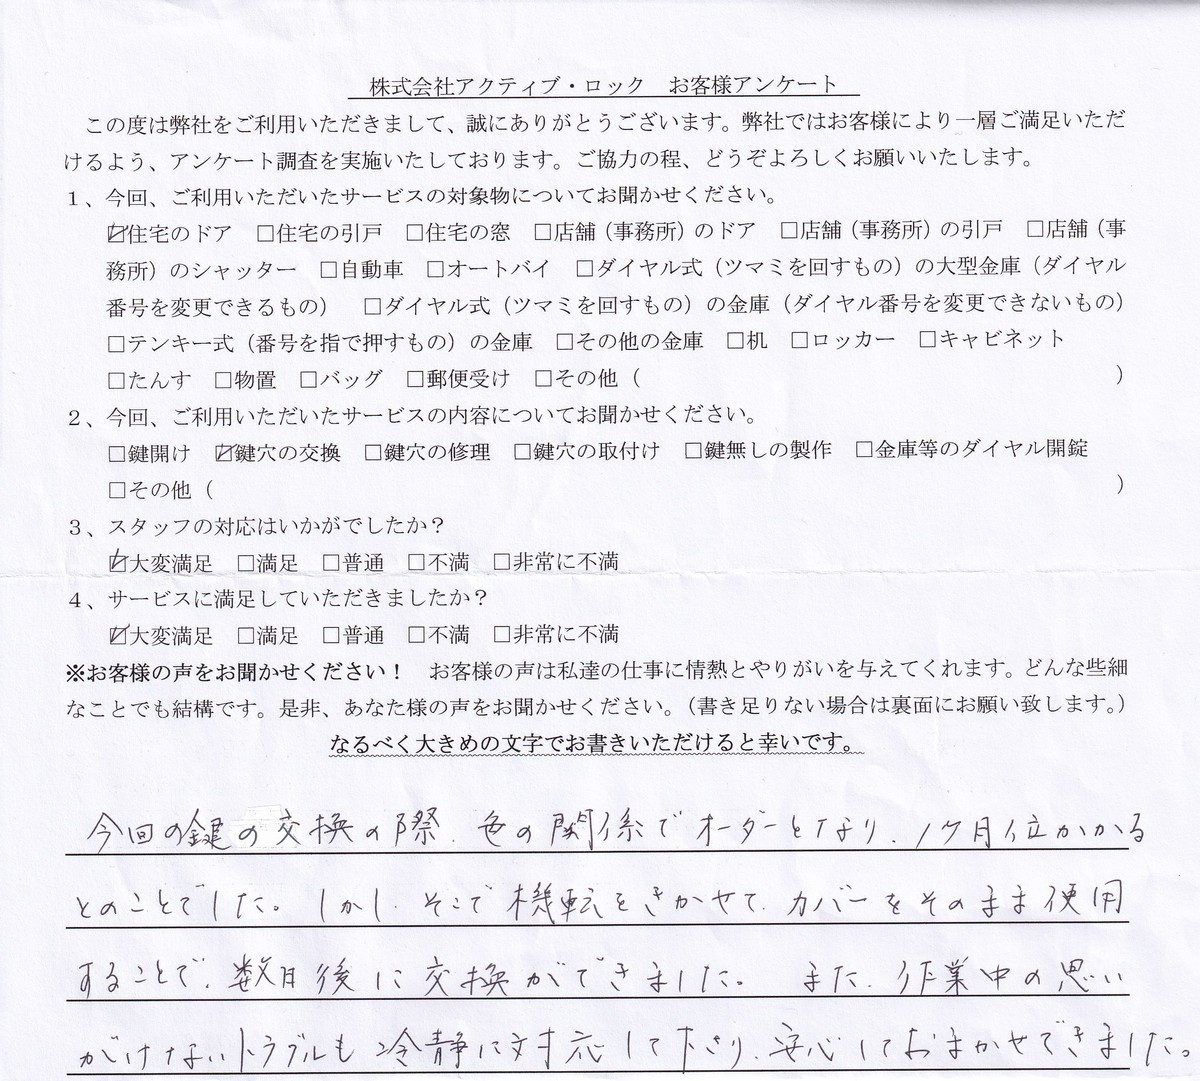 株式会社アクティブ・ロック　お客様アンケート
この度は弊社をご利用いただきまして、誠にありがとうございます。弊社ではお客様により一層ご満足いただ
けるよう、アンケート調査を実施いたしております。ご協力の程、どうぞよろしくお願いいたします。
１、今回、ご利用いただいたサービスの対象物についてお聞かせください。
☑住宅のドア　□住宅の引戸　□住宅の窓　□店舗（事務所）のドア　□店舗（事務所）の引戸　□店舗（事
務所）のシャッター　□自動車　□オートバイ　□ダイヤル式（ツマミを回すもの）の大型金庫（ダイヤル
番号を変更できるもの）　□ダイヤル式（ツマミを回すもの）の金庫（ダイヤル番号を変更できないもの）
□テンキー式（番号を指で押すもの）の金庫　□その他の金庫　□机　□ロッカー　□キャビネット
□たんす　□物置　□バッグ　□郵便受け　□その他（　　　　　　　　　　）
２、今回、ご利用いただいたサービスの内容についてお聞かせください。
□鍵開け　☑鍵穴の交換　□鍵穴の修理　□鍵穴の取付け　□鍵無しの製作　□金庫等のダイヤル開錠
□その他（　　　　　　　　　　）
３、スタッフの対応はいかがでしたか？
☑大変満足　□満足　□普通　□不満　□非常に不満
４、サービスに満足していただきましたか？
☑大変満足　□満足　□普通　□不満　□非常に不満
※お客様の声をお聞かせください！　お客様の声は私達の仕事に情熱とやりがいを与えてくれます。どんな些細
なことでも結構です。是非、あなた様の声をお聞かせください。（書き足りない場合は裏面にお願い致します。）
なるべく大きめの文字でお書きいただけると幸いです。
今回の鍵の交換の際、色の関係でオーダーとなり、1ヶ月位かかる
とのことでした。しかし、そこで機転をきかせて、カバーをそのまま使用
することで、数日後に交換ができました。　また、作業中の思い
がけないトラブルも冷静に対応して下さり、安心しておまかせできました。